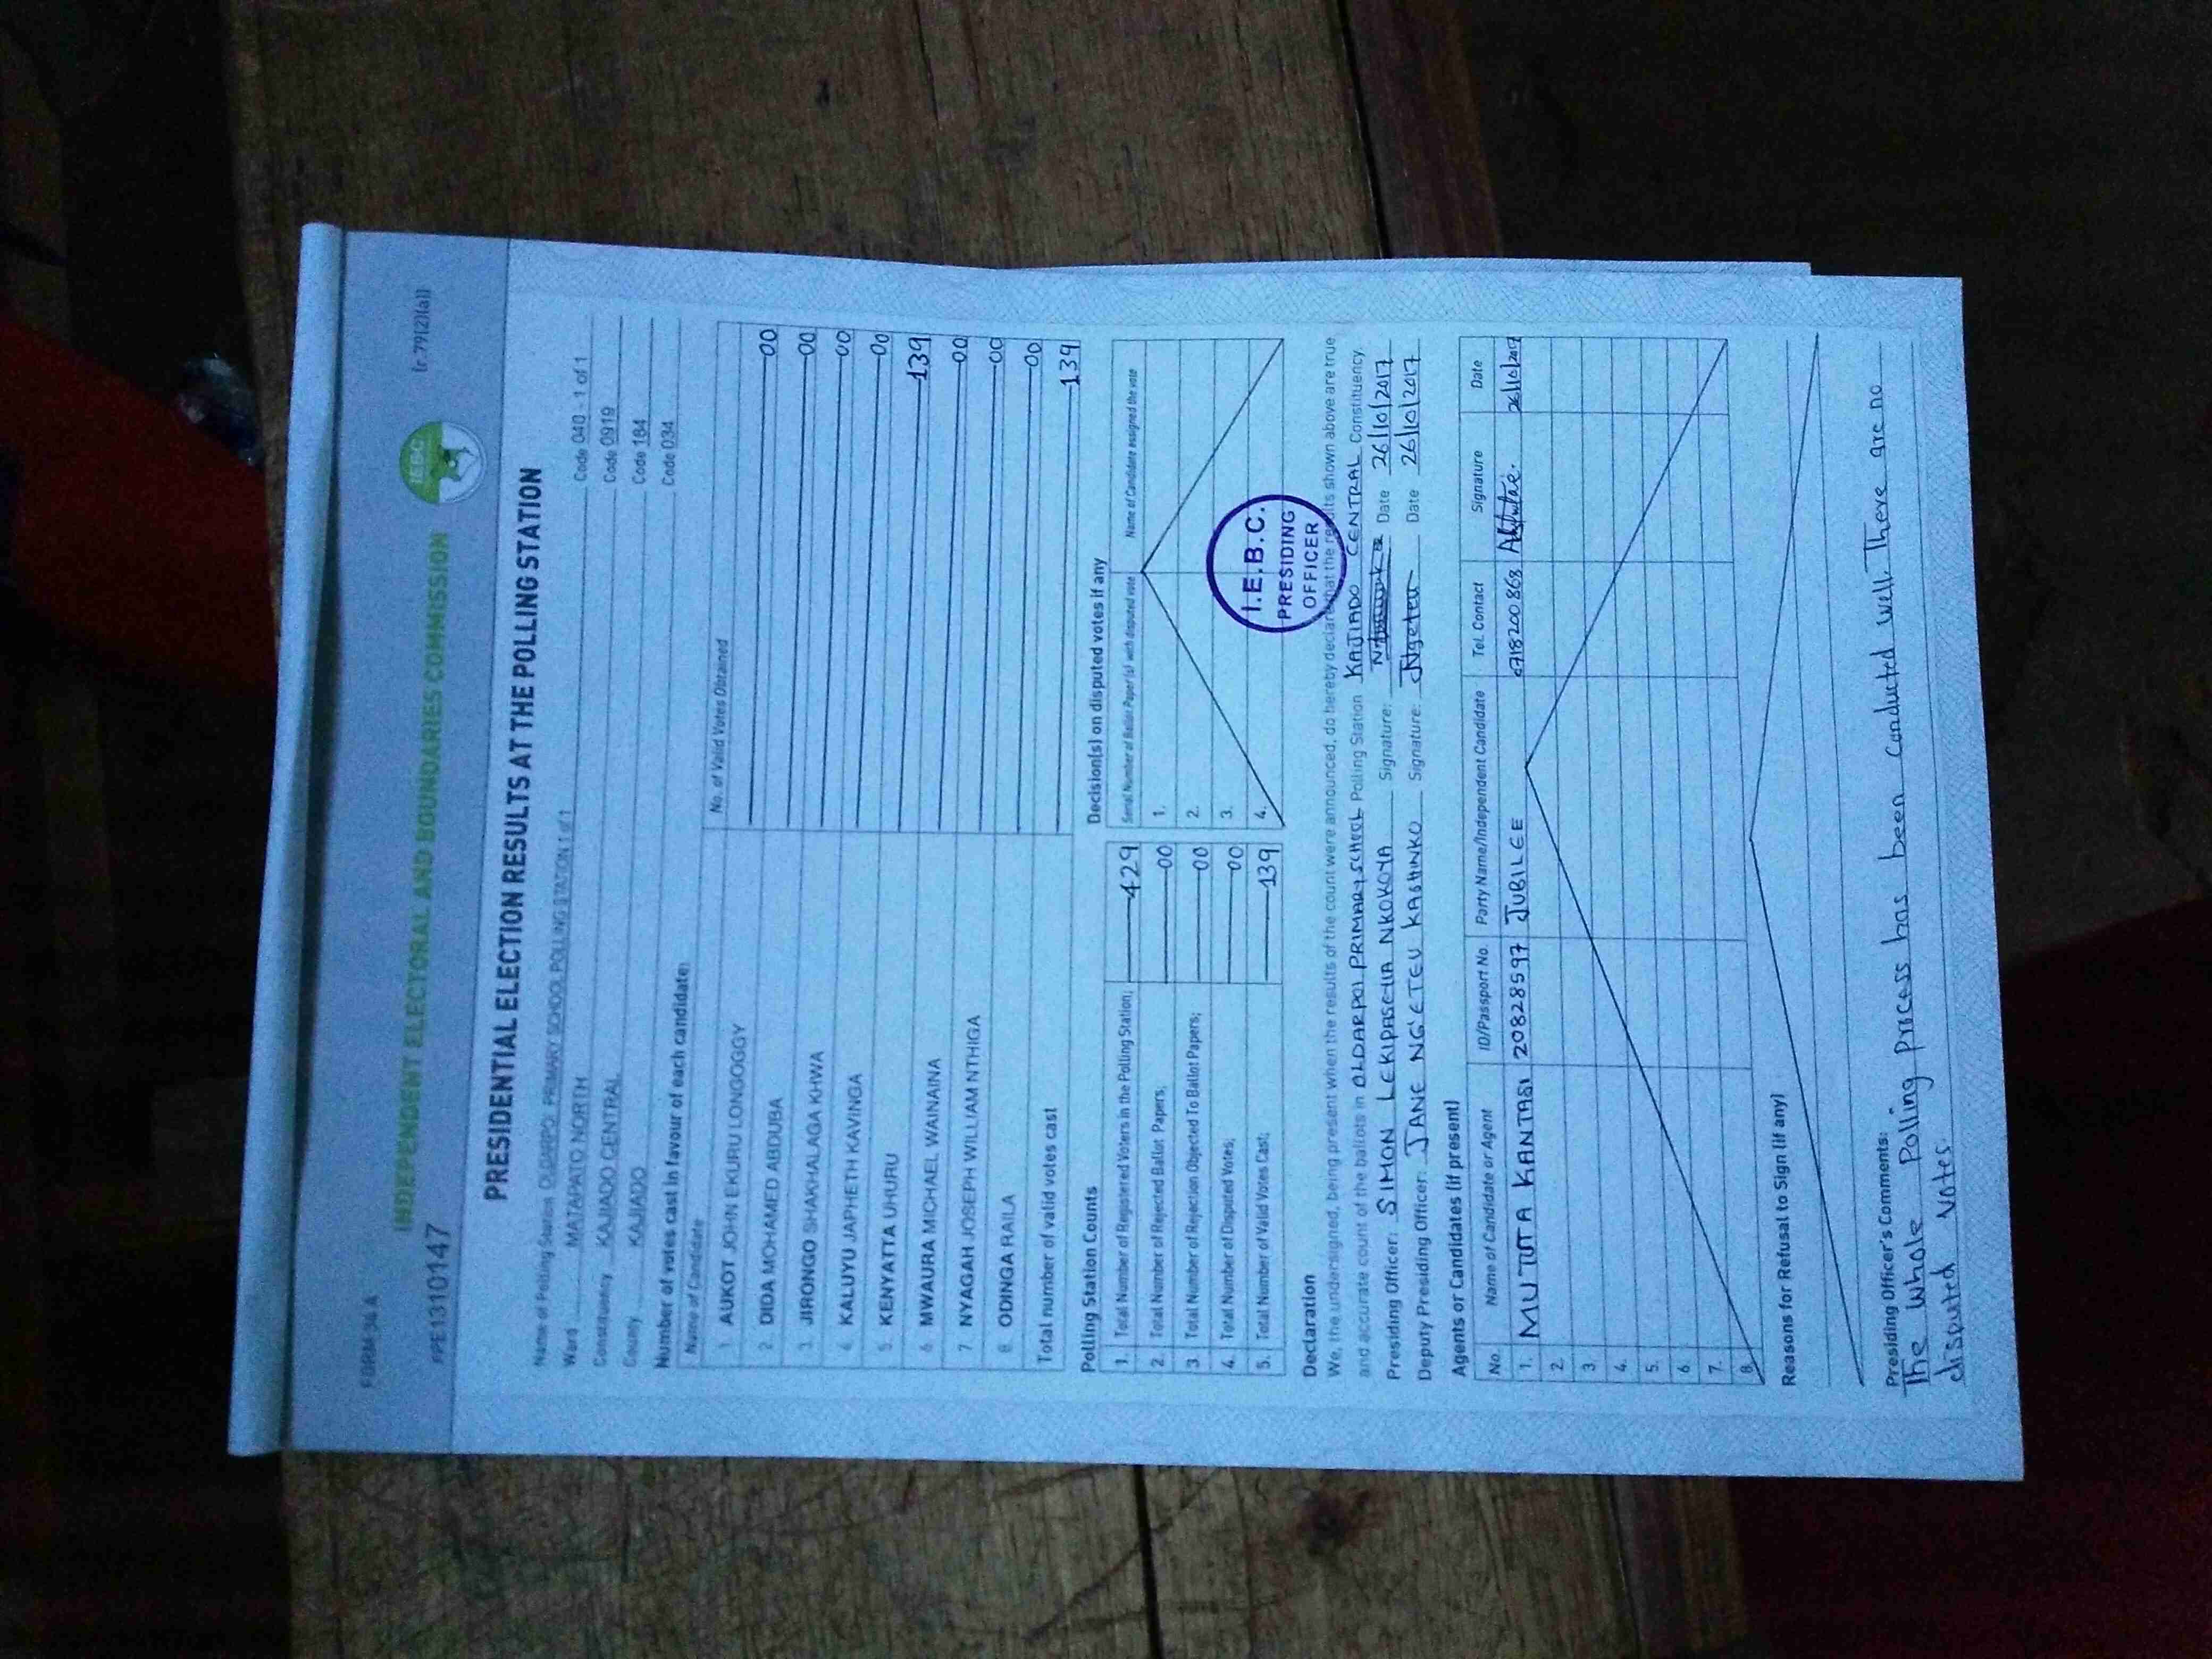 FORM 34 A
(r.79(2)(a))
INDEPENDENT ELECTORAL AND BOUNDARIES COMMISSION
IEBC
PRESIDENTIAL ELECTION RESULTS AT THE POLLING STATION
Name of Polling Station OLDARPOI PRIMARY SCHOOL POLLING STATION 1 of 1 Code 040 - 1 of 1
Ward MATAPATO NORTH Code 0919
Constituency KAJIADO CENTRAL Code 184
County KAJIADO Code 034
Number of votes cast in favour of each candidate;
Name of Candidate No. of Valid Votes Obtained
1 AUKOT JOHN EKURU LONGOGGY 00
2 DIDA MOHAMED ABDUBA 00
3 JIRONGO SHAKHALAGA KHWA 00
4 KALUYU JAPHETH KAVINGA 00
5 KENYATTA UHURU 139
6 MWAURA MICHAEL WAINAINA 00
7 NYAGAH JOSEPH WILLIAM NTHIGA 00
8 ODINGA RAILA 00
Total number of valid votes cast 139
Polling Station Counts
1. Total Number of Registered Voters in the Polling Station; 429
2. Total Number of Rejected Ballot Papers; 00
3 Total Number of Rejection Objected To Ballot Papers; 00
4. Total Number of Disputed Votes; 00
5. Total Number of Valid Votes Cast; 139
Decision(s) on disputed votes if any
Serial Number of Ballot Paper (s) with disputed vote Name of Candidate assigned the vote
1.
2.
3.
4.
I.E.B.C.
PRESIDING
OFFICER
Declaration
We, the undersigned, being present when the results of the count were announced, do hereby declare that the results shown above are true
and accurate count of the ballots in OLDARPOI PRIMARY SCHOOL Polling Station KAJIADO CENTRAL Constituency.
Presiding Officer: SIMON LEKIPASEHIA NKOKOYA Signature: Date 26/10/2017
Deputy Presiding Officer: JANE NG'ETEU KASHINKO Signature: JNgeteu Date 26/10/2017
Agents or Candidates (if present)
No. Name of Candidate or Agent ID/Passport No. Party Name/Independent Candidate Tel. Contact Signature Date
1. MUTUTA KANTASI 20828597 JUBILEE 0718200868 26/10/2017
2.
3.
4.
5.
6
7.
8.
Reasons for Refusal to Sign (if any)
Presiding Officer's Comments:
The whole Polling process has been conducted well. There are no
disputed votes.